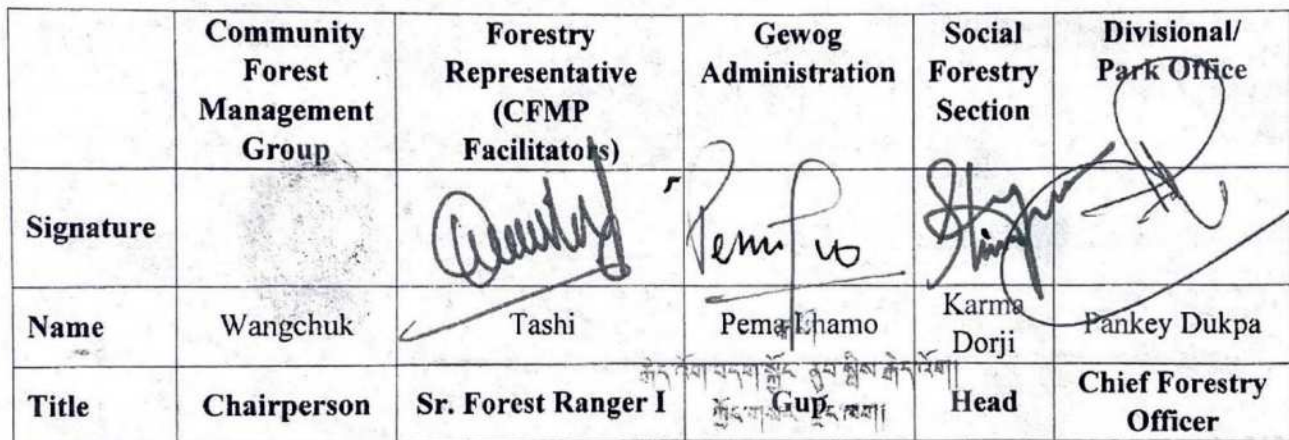 Community Forest Management Group
Forestry Representative (CFMP Facilitators)
Gewog Administration
Social Forestry Section
Divisional/ Park Office
Signature
Name
Wangchuk
Tashi
Pema Lhamo
Karma Dorji
Pankey Dukpa
Title
Chairperson
Sr. Forest Ranger I
Gup
Head
Chief Forestry Officer